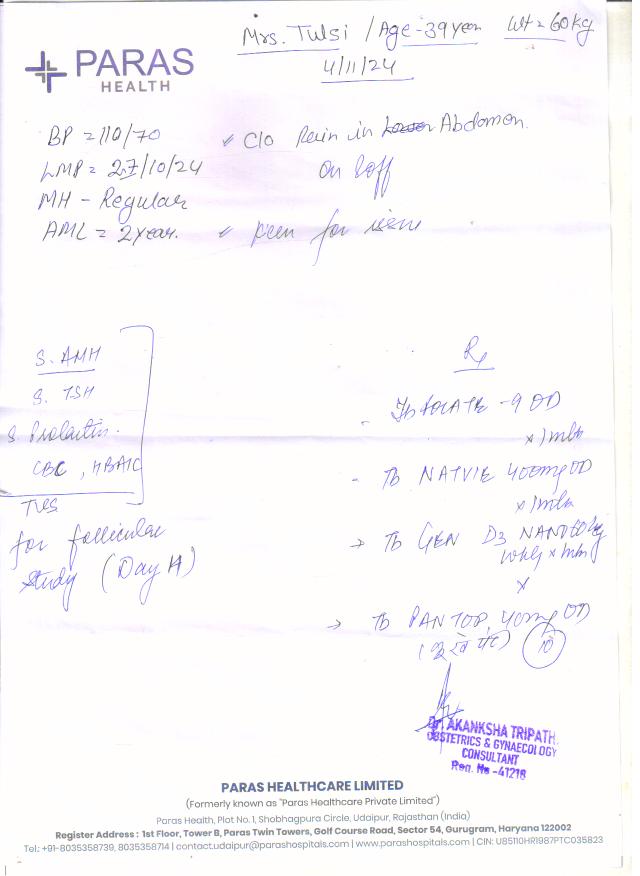 Mrs. Tulsi / Age - 39 year Wt = 60 kg
4/11/24
PARAS
HEALTH
BP = 110/70
✓ C/o Pain in Abdomen.
LMP = 27/10/24
on & off
MH - Regular
AML = 2 year.
✓ keen for issue
S. AMH
S. TSH
S. Prolactin.
CBC, HBA1C
TVS
for follicular
study (Day 11)
Rx
- Tb FOLATE - 9 OD
x 1 mth
- Tb NATVIE 400mg OD
x 1 mth
→ Tb GEN D3 NANO 60k
wkly x mth
x
→ Tb PANTOP 40mg OD
10
Dr. AKANKSHA TRIPATH
OBSTETRICS & GYNAECOLOGY
CONSULTANT
Reg. No -41218
PARAS HEALTHCARE LIMITED
(Formerly known as "Paras Healthcare Private Limited")
Paras Health, Plot No. 1, Shobhagpura Circle, Udaipur, Rajasthan (India)
Register Address : 1st Floor, Tower B, Paras Twin Towers, Golf Course Road, Sector 54, Gurugram, Haryana 122002
Tel.: +91-8035358739, 8035358714 | contact.udaipur@parashospitals.com | www.parashospitals.com | CIN: U85110HR1987PTC035823